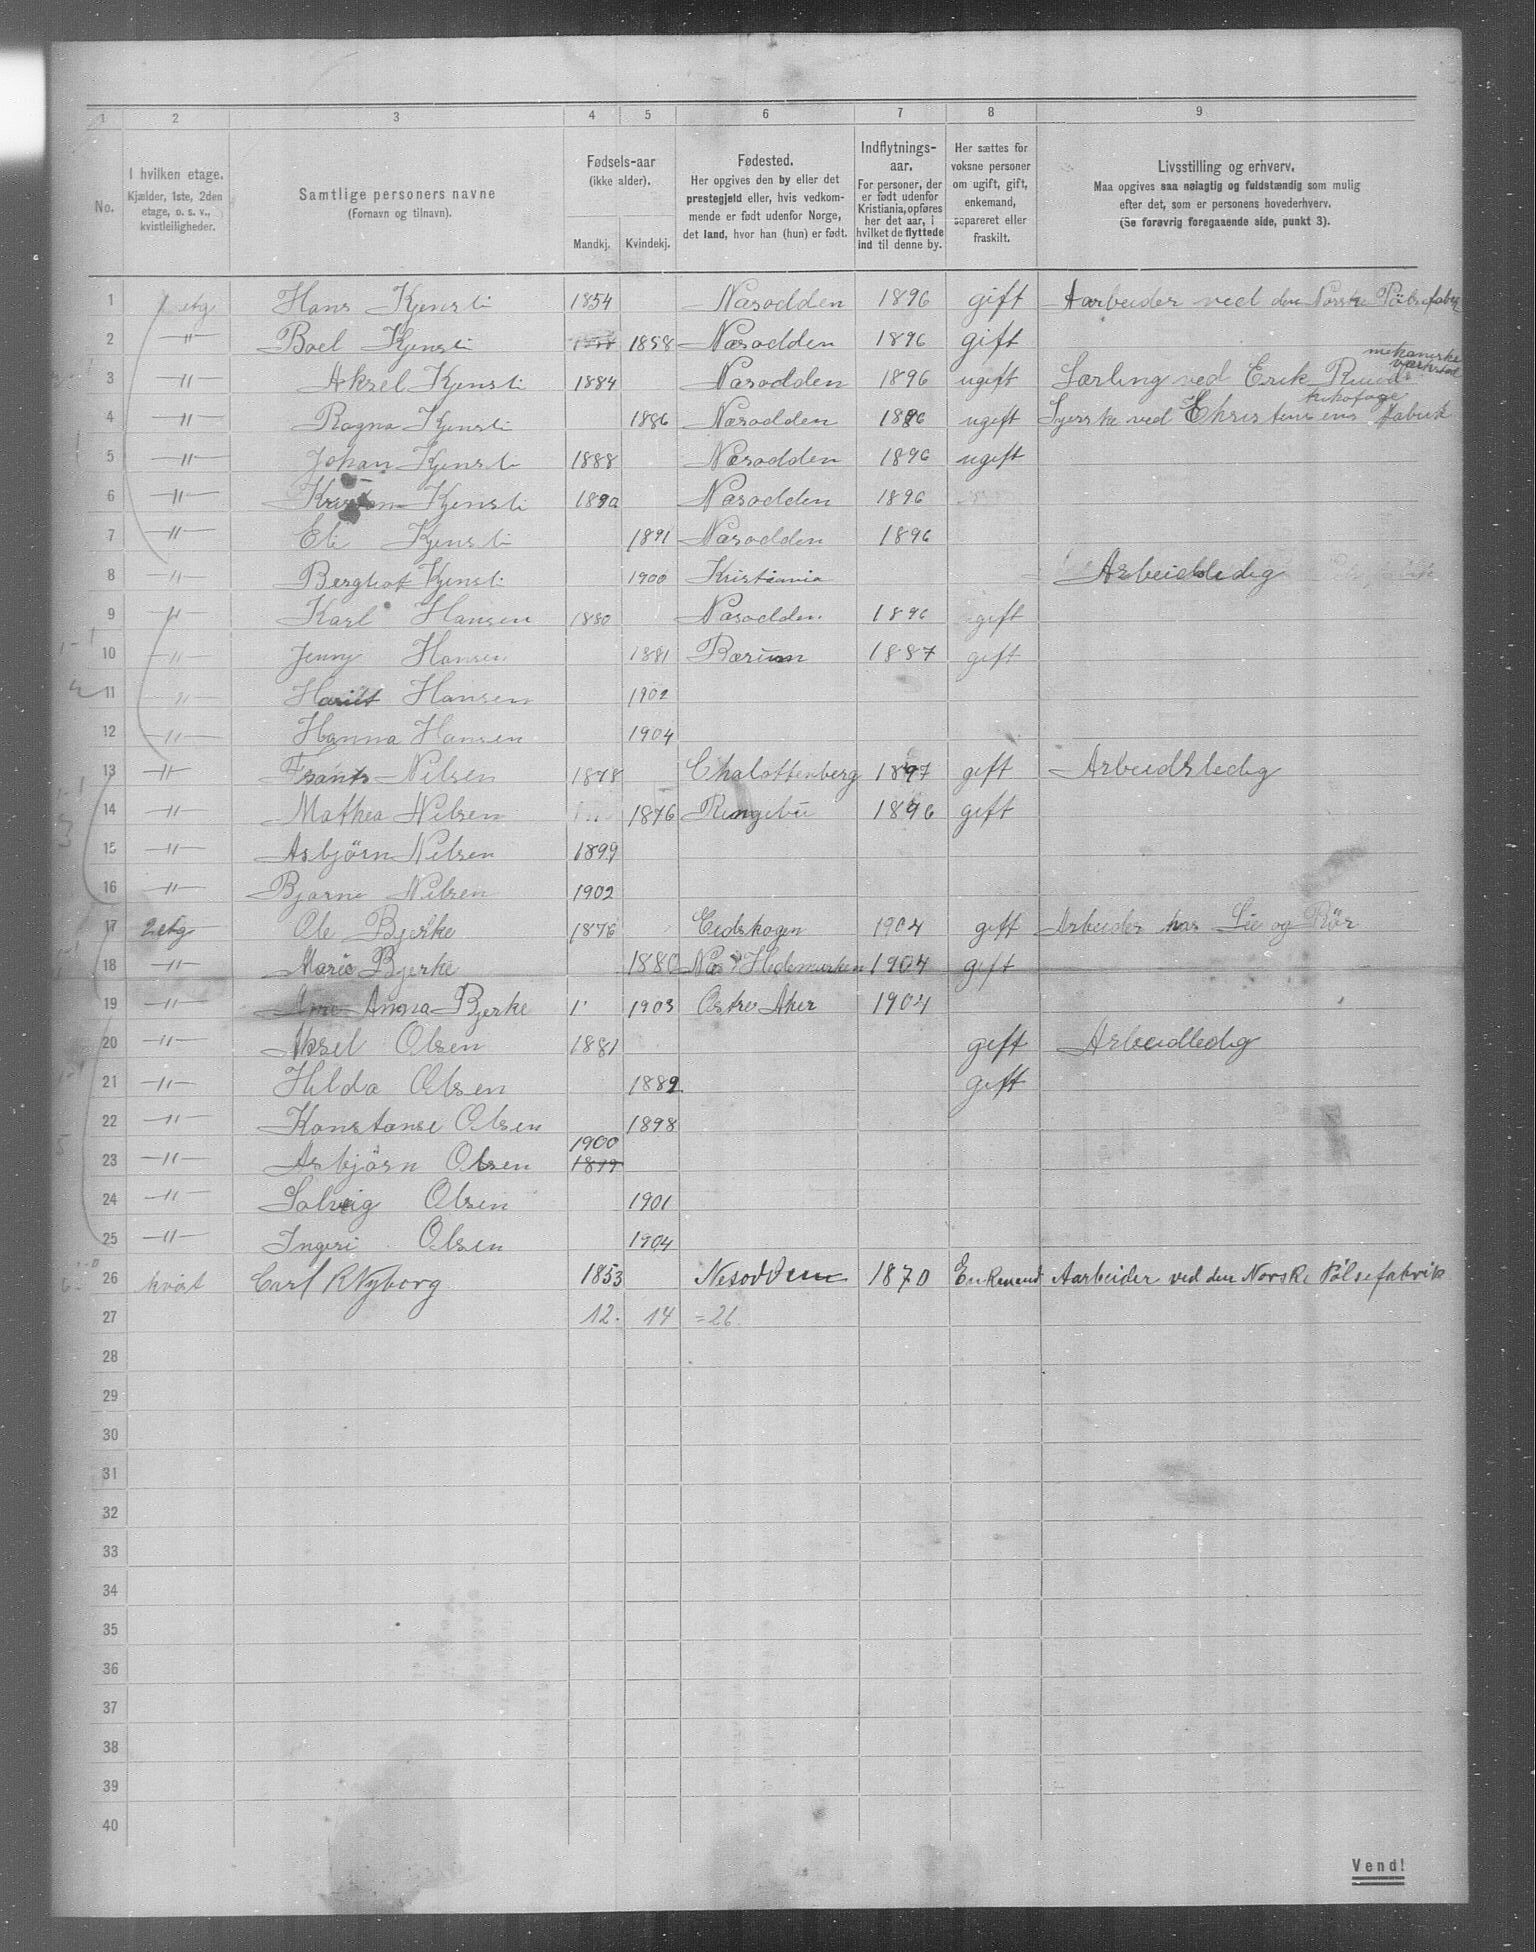 1 2 3 4 5 6 7 8 9
No.
I hvilken etage.
Kjælder, 1ste, 2den
etage, o. s. v.,
kvistleiligheder.
Samtlige personers navne
(Fornavn og tilnavn).
Fødsels-aar
(ikke alder).
Mandkj. Kvindekj.
Fødested.
Her opgives den by eller det
prestegjeld eller, hvis vedkom-
mende er født udenfor Norge,
det land, hvor han (hun) er født.
Indflytnings-
aar.
For personer, der
er født udenfor
Kristiania, opføres
her det aar, i
hvilket de flyttede
ind til denne by.
Her sættes for
voksne personer
om ugift, gift,
enkemand,
separeret eller
fraskilt.
Livsstilling og erhverv.
Maa opgives saa nøiagtig og fuldstændig som mulig
efter det, som er personens hovederhverv.
(Se forøvrig foregaaende side, punkt 3).
1 1 etg Hans Kjensli 1854 Næsodden 1896 gift Aarbeider ved den Norske Pölsefabr
2 -"- Boel Kjensli 1858 Næsodden 1896 gift
mekaniske
værksted
3 -"- Aksel Kjensli 1884 Næsodden 1896 ugift Lærling ved Erik Ruuds
4 -"- Ragna Kjensli 1886 Næsodden 1896 ugift Syerske ved Christensens Fabrik
5 -"- Johan Kjensli 1888 Næsodden 1896 ugift
6 -"- Kristian Kjensli 1890 Næsodden 1896
7 -"- Eli Kjensli 1891 Næsodden 1896
8 -"- Bergliot Kjensli 1900 Kristiania Arbeidsledig
9 -"- Karl Hansen 1880 Næsodden 1896 gift
10 -"- Jenny Hansen 1881 Bærum 1887 gift
11 -"- Hansen 1902
12 -"- Hanna Hansen 1904
13 -"- Frants Nilsen 1878 Chalottenberg 1897 gift Arbeidsledig
14 -"- Mathea Nilsen 1876 Ringebu 1896 gift
15 -"- Asbjörn Nilsen 1899
16 -"- Bjarne Nilsen 1902
17 2 etg Ole Bjerke 1876 Eidskogen 1904 gift Arbeider hos Lie og Rör
18 -"- Marie Bjerke 1880 Næs Hedemarken 1904 gift
19 -"- Anna Bjerke 1903 Østre Aker 1904
20 -"- Aksel Olsen 1881 gift Arbeidledig
21 -"- Hilda Olsen 1882 gift
22 -"- Konstanse Olsen 1898
1900
23 -"- Asbjörn Olsen 1899
24 -"- Solveig Olsen 1901
25 -"- Ingeri Olsen 1904
26 kvist Carl R Nyborg 1853 Nesodden 1870 Enkemend Aarbeider ved den Norske Pölsefabrik
27 12. 14 = 26.
28
29
30
31
32
33
34
35
36
37
38
39
40
Vend!